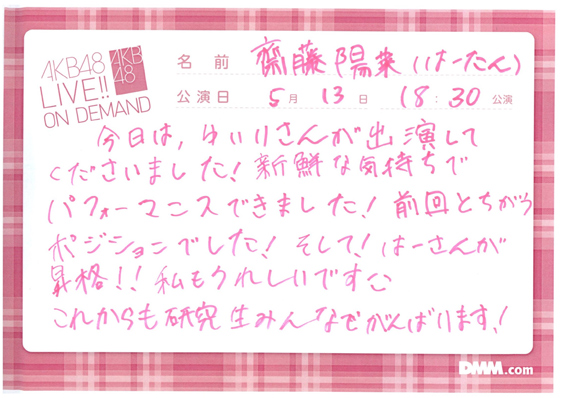 AKB48
LIVE!!
ON DEMAND
AKB
48
名前 齋藤陽菜(はーたん)
公演日 5月13日 18:30公演
今日は、ゆいりさんが出演して
くださいました!新鮮な気持ちで
パフォーマンスできました!前回とちがう
ポジションでした!そして!はーさんが
昇格!!私もうれしいです
これからも研究生みんなでがんばります!
DMM.com